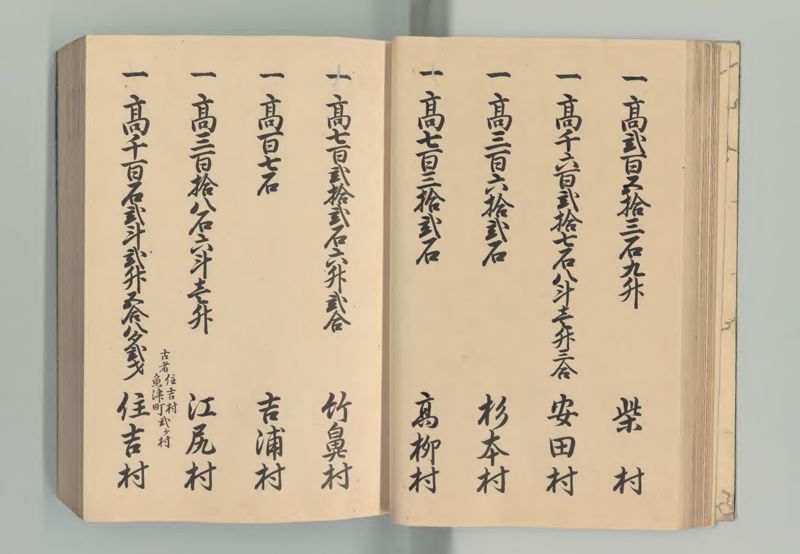 一 高弐百五拾三石九升 柴村
一 高千六百弐拾七石八斗壱升三合 安田村
一 高三百六拾弐石 杉本村
一 高七百三拾弐石 高柳村
一 高七百弐拾弐石六升弐合 竹鼻村
一 高百七石 吉浦村
一 高三百拾八石六斗壱升 江尻村
古者住吉村
魚津町弐ヶ村
一 高千百石弐斗弐升五合八夕弐才 住吉村